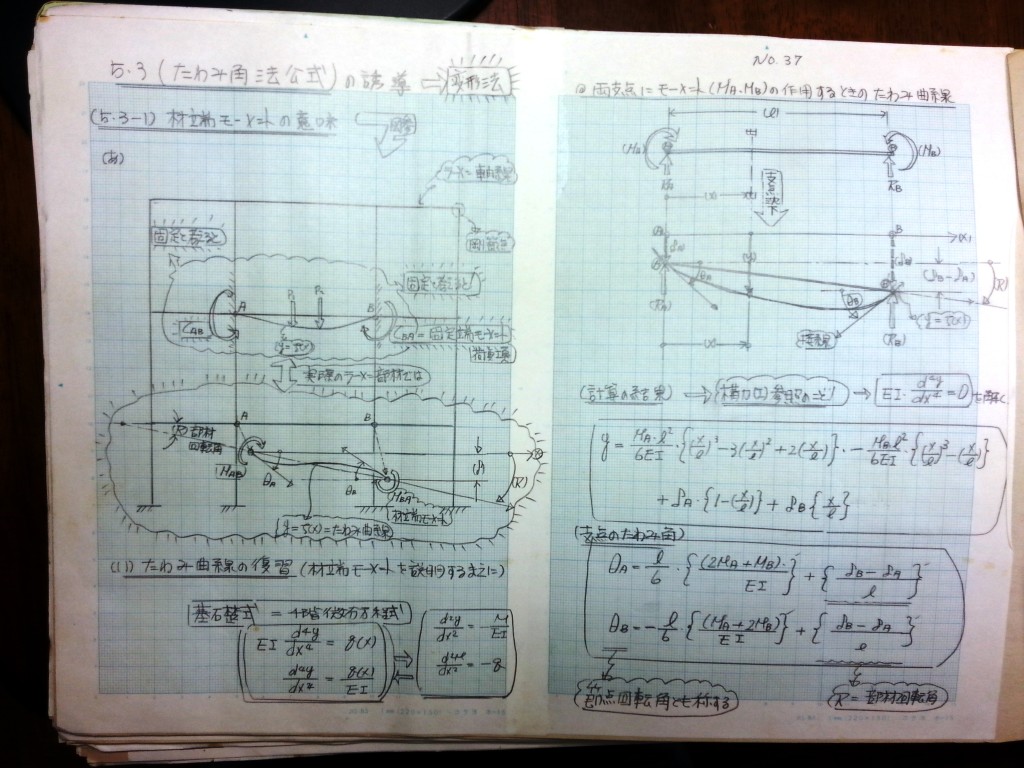 5.3 (たわみ角法公式)の誘導 → 変形法
(5.3-1) 材端モーメントの意味
(あ)
ラーメン軸線
固定と考える
剛節点
固定と考える
A
B
P₁
P₂
y = f(x)
= 固定端モーメント
荷重項
実際のラーメン部材では
A
B
部材
回転角
M_AB
θ_A
θ_B
M_BA
材端モーメント
(R)
y = f(x) = たわみ曲線
(1) たわみ曲線の復習 (材端モーメントを説明するまえに)
基礎式 = 4階微分方程式
EI d⁴y/dx⁴ = q(x)
d⁴y/dx⁴ = q(x)/EI
d²y/dx² = -M/EI
d²M/dx² = -q
No.37
@ 両支点にモーメント(M_A.M_B)の作用するときのたわみ曲線
(l)
(M_A)
(M_B)
R_A
R_B
(x)
支点沈下
A
B
(x)
δ_A
δ_B
(δ_B - δ_A)
θ_A
θ_B
(R)
(y = f(x))
(R_A)
(R_B)
(x)
(計算の結果) ⇒ → EI・d⁴y/dx⁴ = 0 を解く
y = M_A・l²/6EI・{(x/l)³ - 3(x/l)² + 2(x/l)} - M_B・l²/6EI・{(x/l)³ - (x/l)}
+ δ_A・{1 - (x/l)} + δ_B{x/l}
(支点のたわみ角)
θ_A = l/6・{(2M_A + M_B)/EI} + {δ_B - δ_A/l}
θ_B = -l/6・{(M_A + 2M_B)/EI} + {δ_B - δ_A/l}
節点回転角とも称する
R = 部材回転角